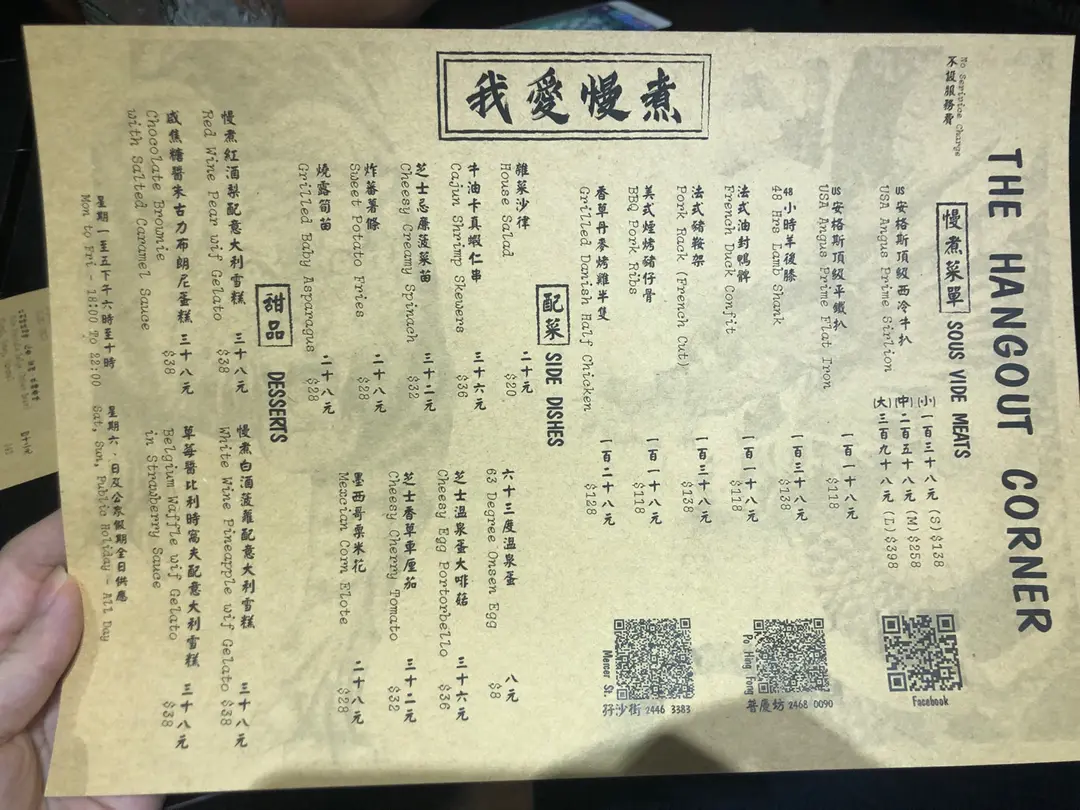 THE HANGOUT CORNER
No Serivice Charge
不設服務費
慢煮菜單 SOUS VIDE MEATS
我愛慢煮
US安格斯頂級西冷牛扒
USA Angus Prime Sirlion
(小) 一百三十八元 (S) $138
(中) 二百五十八元 (M) $258
(大) 三百九十八元 (L) $398
US安格斯頂級平鐵扒 一百一十八元
USA Angus Prime Flat Iron $118
48小時羊後膝 一百三十八元
48 Hrs Lamb Shank $138
法式油封鴨髀 一百一十八元
French Duck Confit $118
法式豬鞍架 一百三十八元
Pork Rack (French Cut) $138
美式煙烤豬仔骨 一百一十八元
BBQ Pork Ribs $118
香草丹麥烤雞半隻 一百二十八元
Grilled Danish Half Chicken $128
Facebook
Po Hing Fong
普慶坊 2468 0090
Mercer St.
孖沙街 2446 3383
配菜 SIDE DISHES
雜菜沙律 二十元
House Salad $20
牛油卡真蝦仁串 三十六元
Cajun Shrimp Skewers $36
芝士忌廉菠菜苗 三十二元
Cheesy Creamy Spinach $32
炸蕃薯條 二十八元
Sweet Potato Fries $28
燒露筍苗 二十八元
Grilled Baby Asparagus $28
六十三度溫泉蛋 八元
63 Degree Onsen Egg $8
芝士溫泉蛋大啡菇 三十六元
Cheesy Egg Portorbello $36
芝士香草車厘茄 三十二元
Cheesy Cherry Tomato $32
墨西哥粟米花 二十八元
Mexcian Corn Elote $28
甜品 DESSERTS
慢煮紅酒梨配意大利雪糕 三十八元
Red Wine Pear wif Gelato $38
咸焦糖醬朱古力布朗尼蛋糕 三十八元
Chocolate Brownie $38
with Salted Caramel Sauce
慢煮白酒菠蘿配意大利雪糕 三十八元
White Wine Pineapple wif Gelato $38
草莓醬比利時窩夫配意大利雪糕 三十八元
Belgium Waffle wif Gelato $38
in Strawberry Sauce
星期一至五下午六時至十時
Mon to Fri - 18:00 To 22:00
星期六，日及公眾假期全日供應
Sat, Sun, Public Holiday - All Day